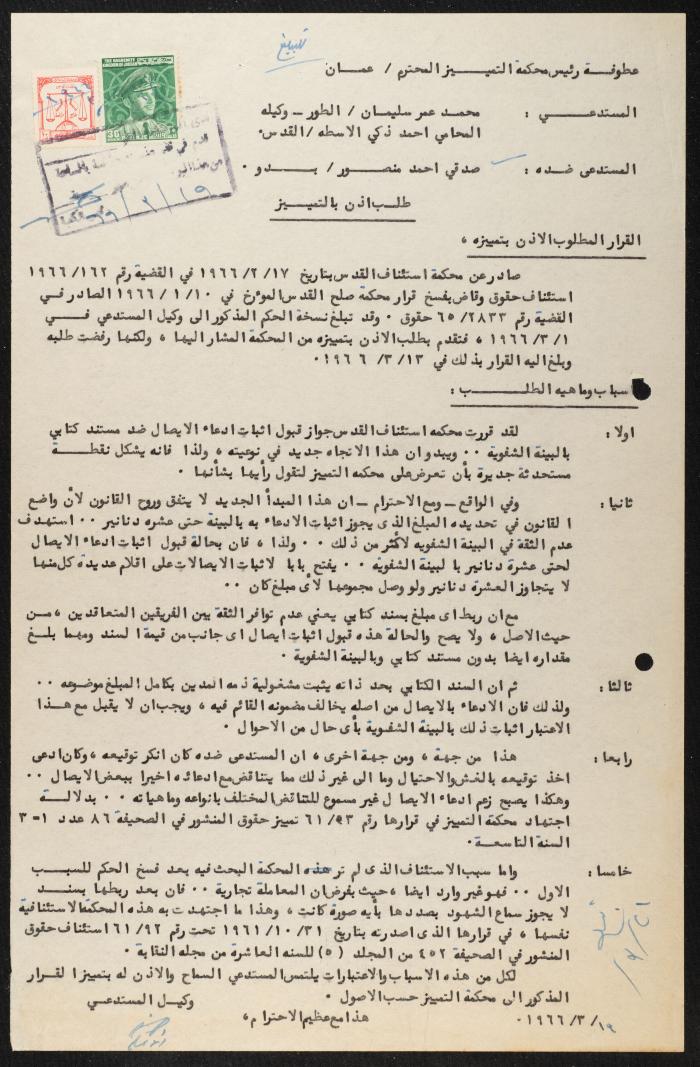 تبليغ
THE HASHEMITE KINGDOM OF JORDAN
30
عطوفة رئيس محكمة التمييز المحترم / عمان
المستدعي : محمد عمر سليمان / الطور ــ وكيله
المحامي احمد ذكي الاسطه / القدس ٠
المستدعى ضده : صدقي احمد منصور / بدو ٠
طلب اذن بالتمييز
١٩ / ٣ / ٦٦
القرار المطلوب الاذن بتمييزه ،
صادر عن محكمة استئناف القدس بتاريخ ١٧ /٢ /١٩٦٦ في القضية رقم ١٦٢ /١٩٦٦
استئناف حقوق وقاض بفسخ قرار محكمة صلح القدس المؤرخ في ١٠ /١ /١٩٦٦ الصادر في
القضية رقم ٢٨٣٣ /٦٥ حقوق ٠ وقد تبلغ نسخة الحكم المذكور الى وكيل المستدعي في
١ /٣ /١٩٦٦ ، فتقدم بطلب الاذن بتمييزه من المحكمة المشار اليها ، ولكنها رفضت طلبه
وبلغ اليه القرار بذلك في ١٣ /٣ /١٩٦٦ ٠
سباب وماهيه الطلب :
اولا : لقد قررت محكمه استئناف القدس جواز قبول اثبات ادعاء الايصال ضد مستند كتابي
بالبينة الشفوية ٠٠ ويبدو ان هذا الاتجاه جديد في نوعيته ، ولذا فانه يشكل نقطة
مستحدثة جديرة بأن تعرض على محكمه التمييز لتقول رأيها بشأنها ٠
ثانيا : وفي الواقع ــ ومع الاحترام ــ ان هذا المبدأ الجديد لا يتفق وروح القانون لأن واضع
القانون في تحديده المبلغ الذى يجوز اثبات الادعاء به بالبينة حتى عشره دنانير ٠٠ استهدف
عدم الثقة في البينة الشفويه لأكثر من ذلك ٠٠ ولذا ، فان بحالة قبول اثبات ادعاء الايصال
لحتى عشرة دنانير بالبينة الشفوية ٠٠ يفتح بابا لاثبات الايصالات على اقلام عديده كل منها
لا يتجاوز العشرة دنانير ولو وصل مجموعها لأى مبلغ كان ٠٠
مع ان ربط اى مبلغ بسند كتابي يعني عدم توافر الثقة بين الفريقين المتعاقدين ، من
حيث الاصل ، ولا يصح والحالة هذه قبول اثبات ايصال اى جانب من قيمة السند ومهما بلغ
مقداره ايضا بدون مستند كتابي وبالبينة الشفوية ٠
ثالثا : ثم ان السند الكتابي بحد ذاته يثبت مشغولية ذمه المدين بكامل المبلغ موضوعه ٠٠
ولذلك فان الادعاء بالايصال من اصله يخالف مضمونه القائم فيه ، ويجب ان لا يقبل مع هذا
الاعتبار اثبات ذلك بالبينة الشفوية بأى حال من الاحوال ٠
رابعا : هذا من جهة ، ومن جهة اخرى ، ان المستدعى ضده كان انكر توقيعه ، وكان ادعى
اخذ توقيعه بالغش والاحتيال وما الى غير ذلك مما يتناقض مع ادعائه اخيرا ببعض الايصال ٠٠
وهكذا يصبح زعم ادعاء الايصال غير مسموع للتناقض المختلف بانواعه وماهياته ٠٠ بدلالة
اجتهاد محكمة التمييز في قرارها رقم ٩٣ /٦١ تمييز حقوق المنشور في الصحيفة ٨٦ عدد ١ــ٣
السنة التاسعة ٠
خامسا : واما سبب الاستئناف الذى لم تر هذه المحكمة البحث فيه بعد فسخ الحكم للسبب
الاول ٠٠ فهو غير وارد ايضا ، حيث بفرض ان المعاملة تجارية ٠٠ فان بعد ربطها بسند
لا يجوز سماع الشهود بصددها بأيه صورة كانت ، وهذا ما اجتهدت به هذه المحكمة الاستئنافية
نفسها ، في قرارها الذى اصدرته بتاريخ ٣١ /١٠ /١٩٦١ تحت رقم ٩٢ /٦١ استئناف حقوق
المنشور في الصحيفة ٤٥٢ من المجلد (٥) للسنه العاشرة من مجله النقابة ٠
لكل من هذه الاسباب والاعتبارات يلتمس المستدعي السماح والاذن له بتمييز القرار
المذكور الى محكمة التمييز حسب الاصول ٠ وكيل المستدعي
هذا مع عظيم الاحترام ،
١٩ /٣ /١٩٦٦ ٠